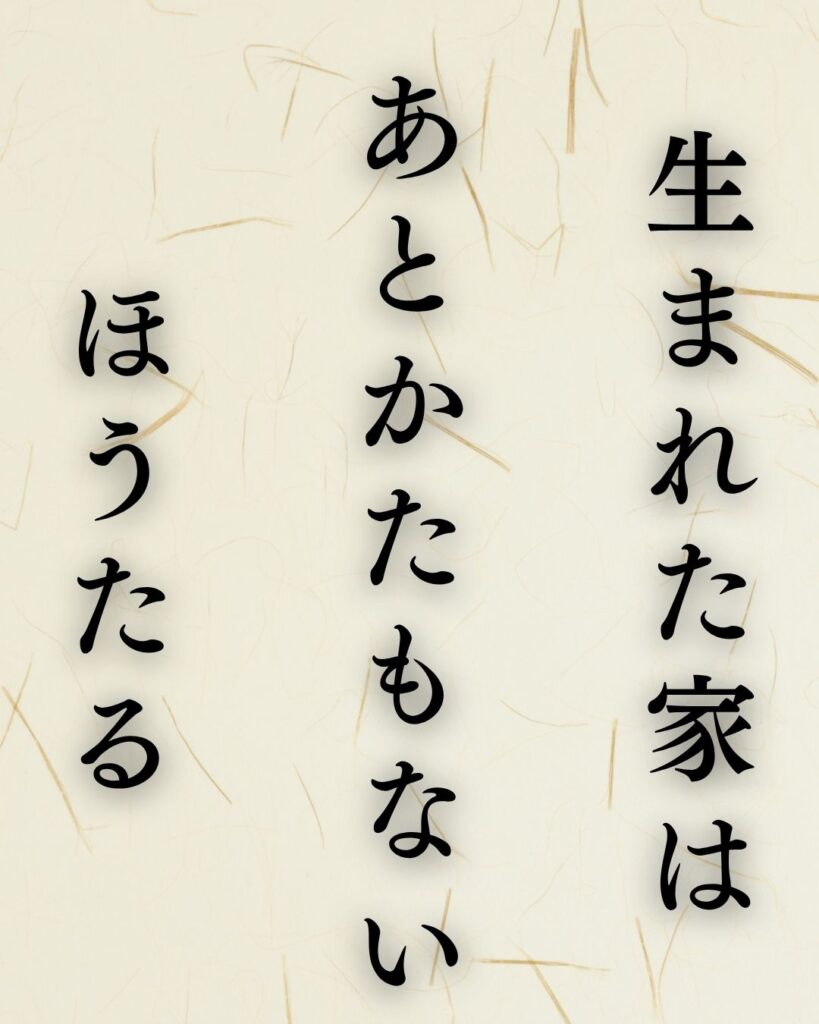 生まれた家は
あとかたもない
ほうたる